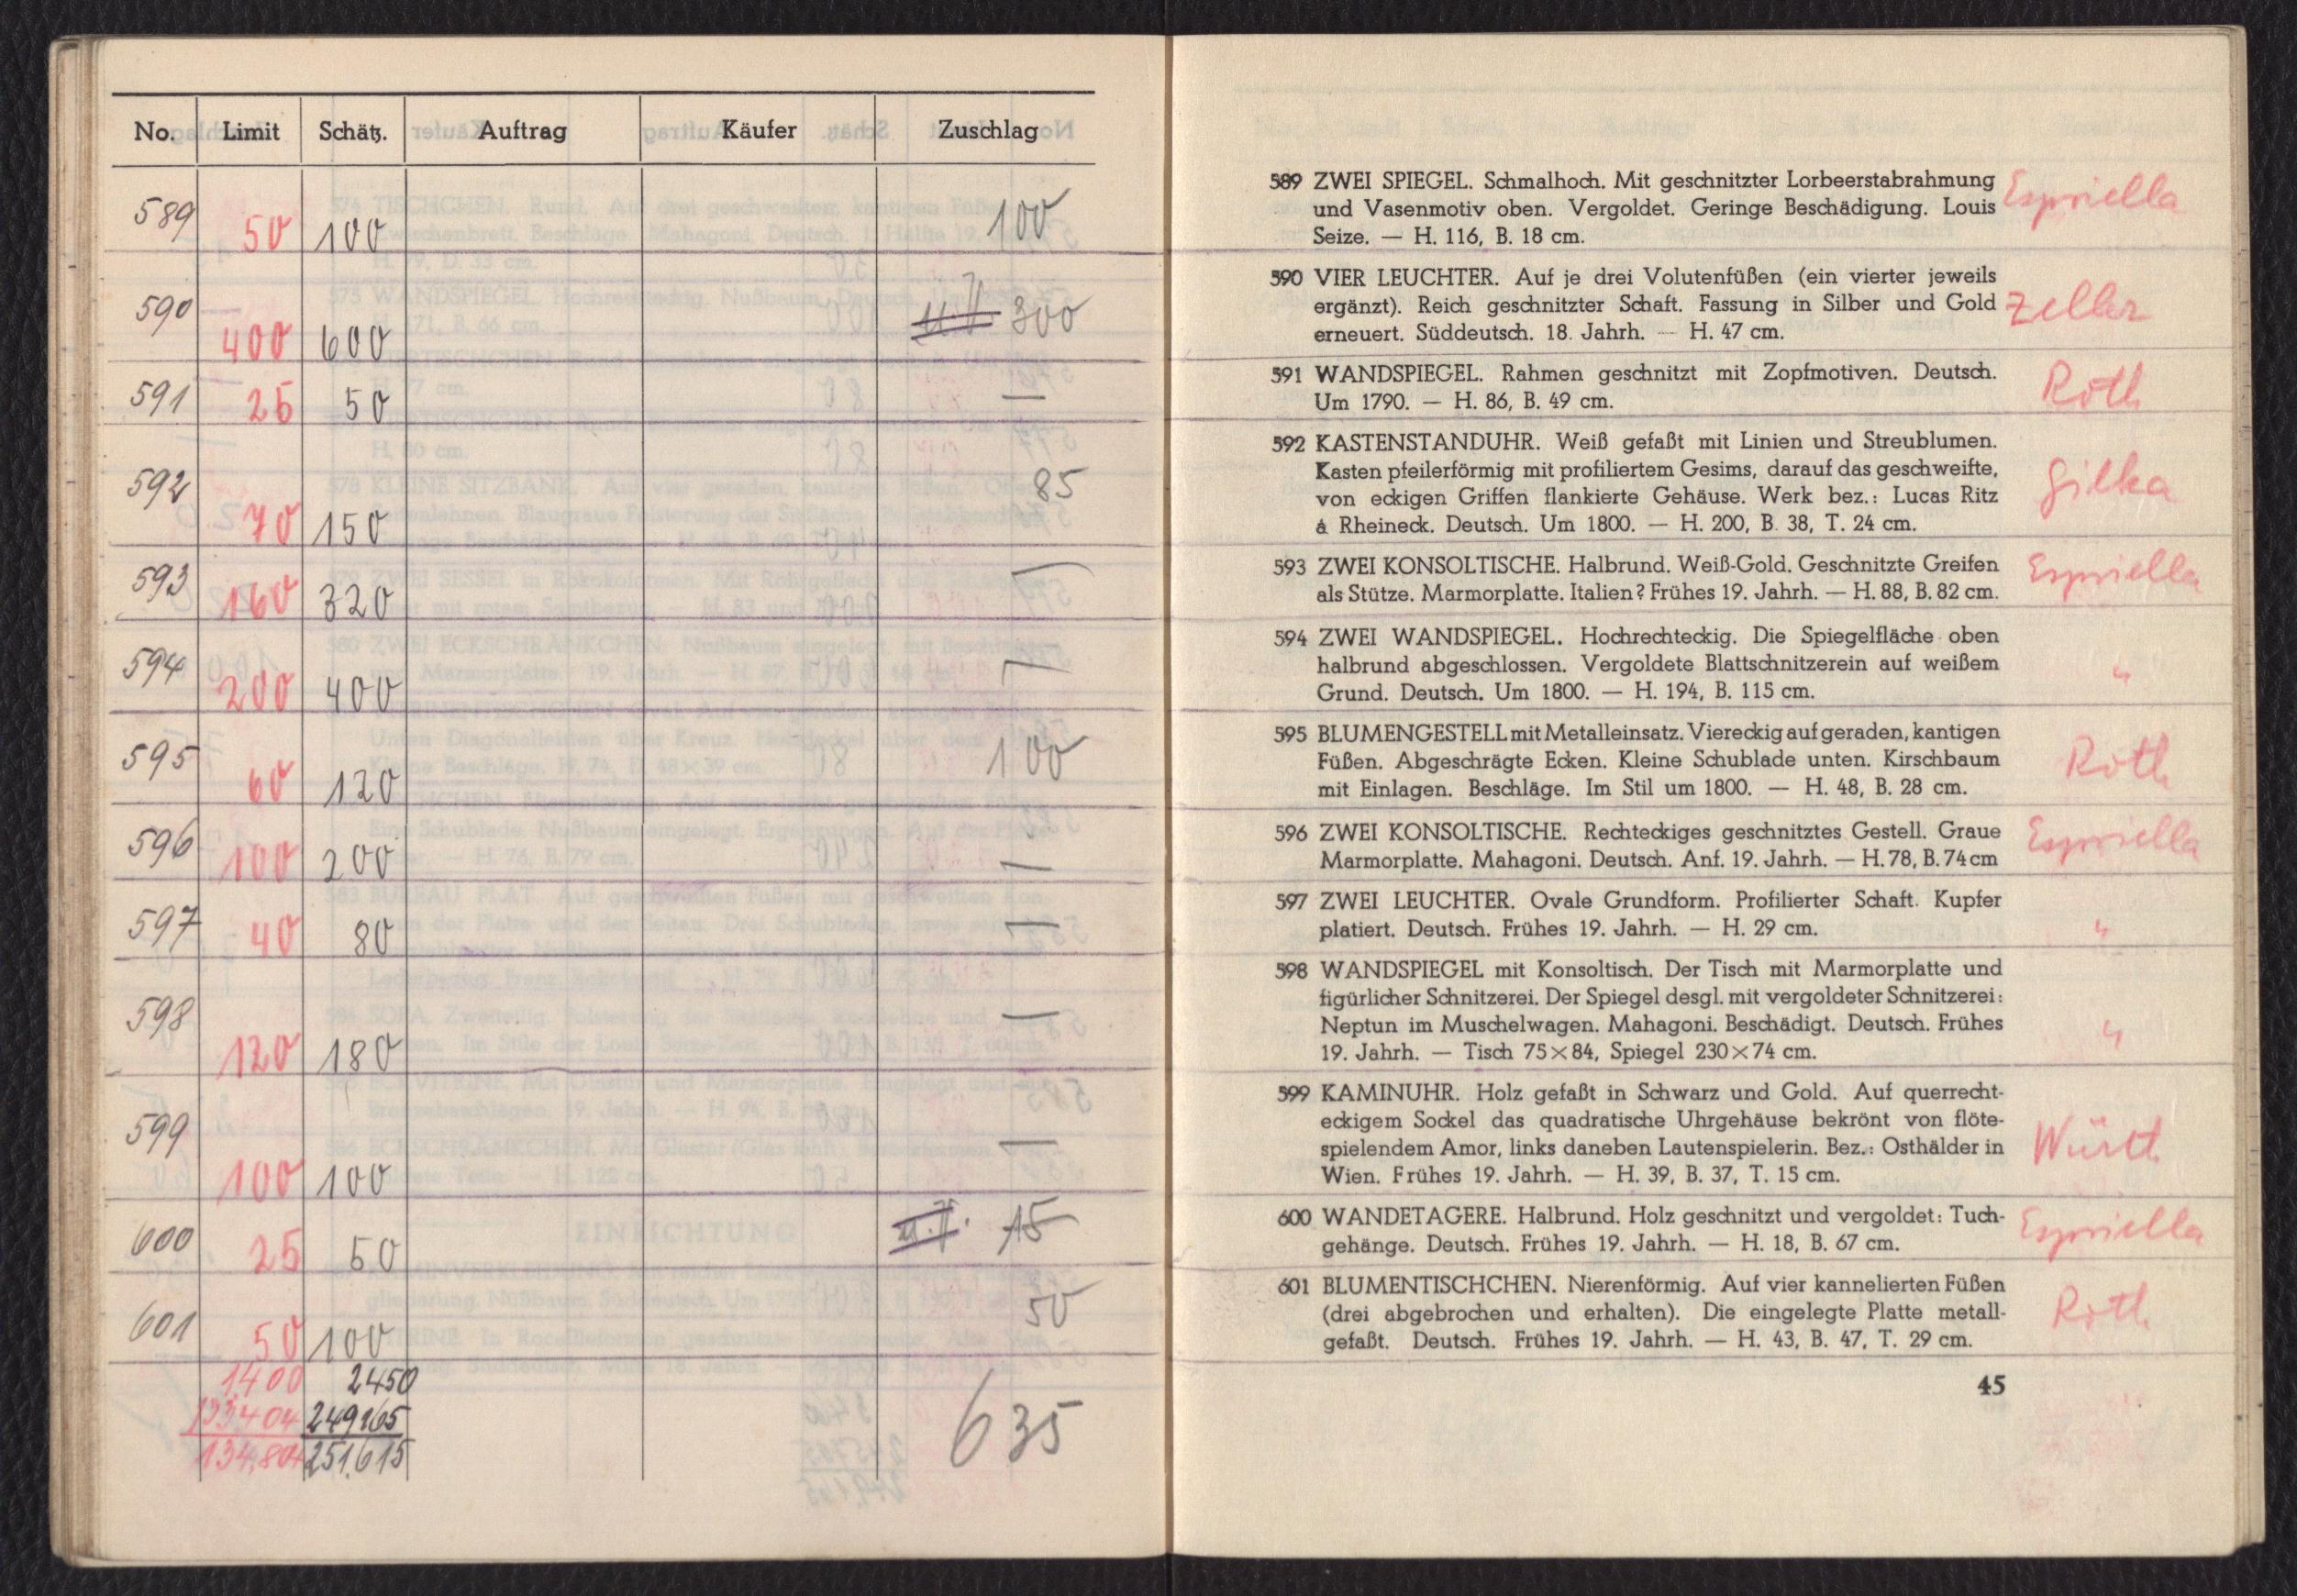 No. Limit Schätz. Auftrag Käufer Zuschlag
589 50 100 100
590 400 600 300
591 25 50 —
592 70 150 85
593 160 320 —
594 200 400 —
595 60 120 100
596 100 200 —
597 40 80 —
598 120 180 —
599 100 100 —
600 25 50 15
601 50 100 50
1400 2450
133404 249165 635
134.804 251.615
589 ZWEI SPIEGEL. Schmalhoch. Mit geschnitzter Lorbeerstabrahmung Espriella
und Vasenmotiv oben. Vergoldet. Geringe Beschädigung. Louis
Seize. — H. 116, B. 18 cm.
590 VIER LEUCHTER. Auf je drei Volutenfüßen (ein vierter jeweils
ergänzt). Reich geschnitzter Schaft. Fassung in Silber und Gold Zeller
erneuert. Süddeutsch. 18. Jahrh. — H. 47 cm.
591 WANDSPIEGEL. Rahmen geschnitzt mit Zopfmotiven. Deutsch. Roth
Um 1790. — H. 86, B. 49 cm.
592 KASTENSTANDUHR. Weiß gefaßt mit Linien und Streublumen.
Kasten pfeilerförmig mit profiliertem Gesims, darauf das geschweifte, Gilka
von eckigen Griffen flankierte Gehäuse. Werk bez.: Lucas Ritz
á Rheineck. Deutsch. Um 1800. — H. 200, B. 38, T. 24 cm.
593 ZWEI KONSOLTISCHE. Halbrund. Weiß-Gold. Geschnitzte Greifen Espriella
als Stütze. Marmorplatte. Italien? Frühes 19. Jahrh. — H. 88, B. 82 cm.
594 ZWEI WANDSPIEGEL. Hochrechteckig. Die Spiegelfläche oben
halbrund abgeschlossen. Vergoldete Blattschnitzerein auf weißem "
Grund. Deutsch. Um 1800. — H. 194, B. 115 cm.
595 BLUMENGESTELL mit Metalleinsatz. Viereckig auf geraden, kantigen
Füßen. Abgeschrägte Ecken. Kleine Schublade unten. Kirschbaum Roth
mit Einlagen. Beschläge. Im Stil um 1800. — H. 48, B. 28 cm.
596 ZWEI KONSOLTISCHE. Rechteckiges geschnitztes Gestell. Graue Espriella
Marmorplatte. Mahagoni. Deutsch. Anf. 19. Jahrh. — H. 78, B. 74 cm
597 ZWEI LEUCHTER. Ovale Grundform. Profilierter Schaft. Kupfer
platiert. Deutsch. Frühes 19. Jahrh. — H. 29 cm. "
598 WANDSPIEGEL mit Konsoltisch. Der Tisch mit Marmorplatte und
figürlicher Schnitzerei. Der Spiegel desgl. mit vergoldeter Schnitzerei:
Neptun im Muschelwagen. Mahagoni. Beschädigt. Deutsch. Frühes "
19. Jahrh. — Tisch 75×84, Spiegel 230×74 cm.
599 KAMINUHR. Holz gefaßt in Schwarz und Gold. Auf querrecht-
eckigem Sockel das quadratische Uhrgehäuse bekrönt von flöte-
spielendem Amor, links daneben Lautenspielerin. Bez.: Osthälder in Württ.
Wien. Frühes 19. Jahrh. — H. 39, B. 37, T. 15 cm.
600 WANDETAGERE. Halbrund. Holz geschnitzt und vergoldet: Tuch- Espriella
gehänge. Deutsch. Frühes 19. Jahrh. — H. 18, B. 67 cm.
601 BLUMENTISCHCHEN. Nierenförmig. Auf vier kannelierten Füßen
(drei abgebrochen und erhalten). Die eingelegte Platte metall- Roth
gefaßt. Deutsch. Frühes 19. Jahrh. — H. 43, B. 47, T. 29 cm.
45